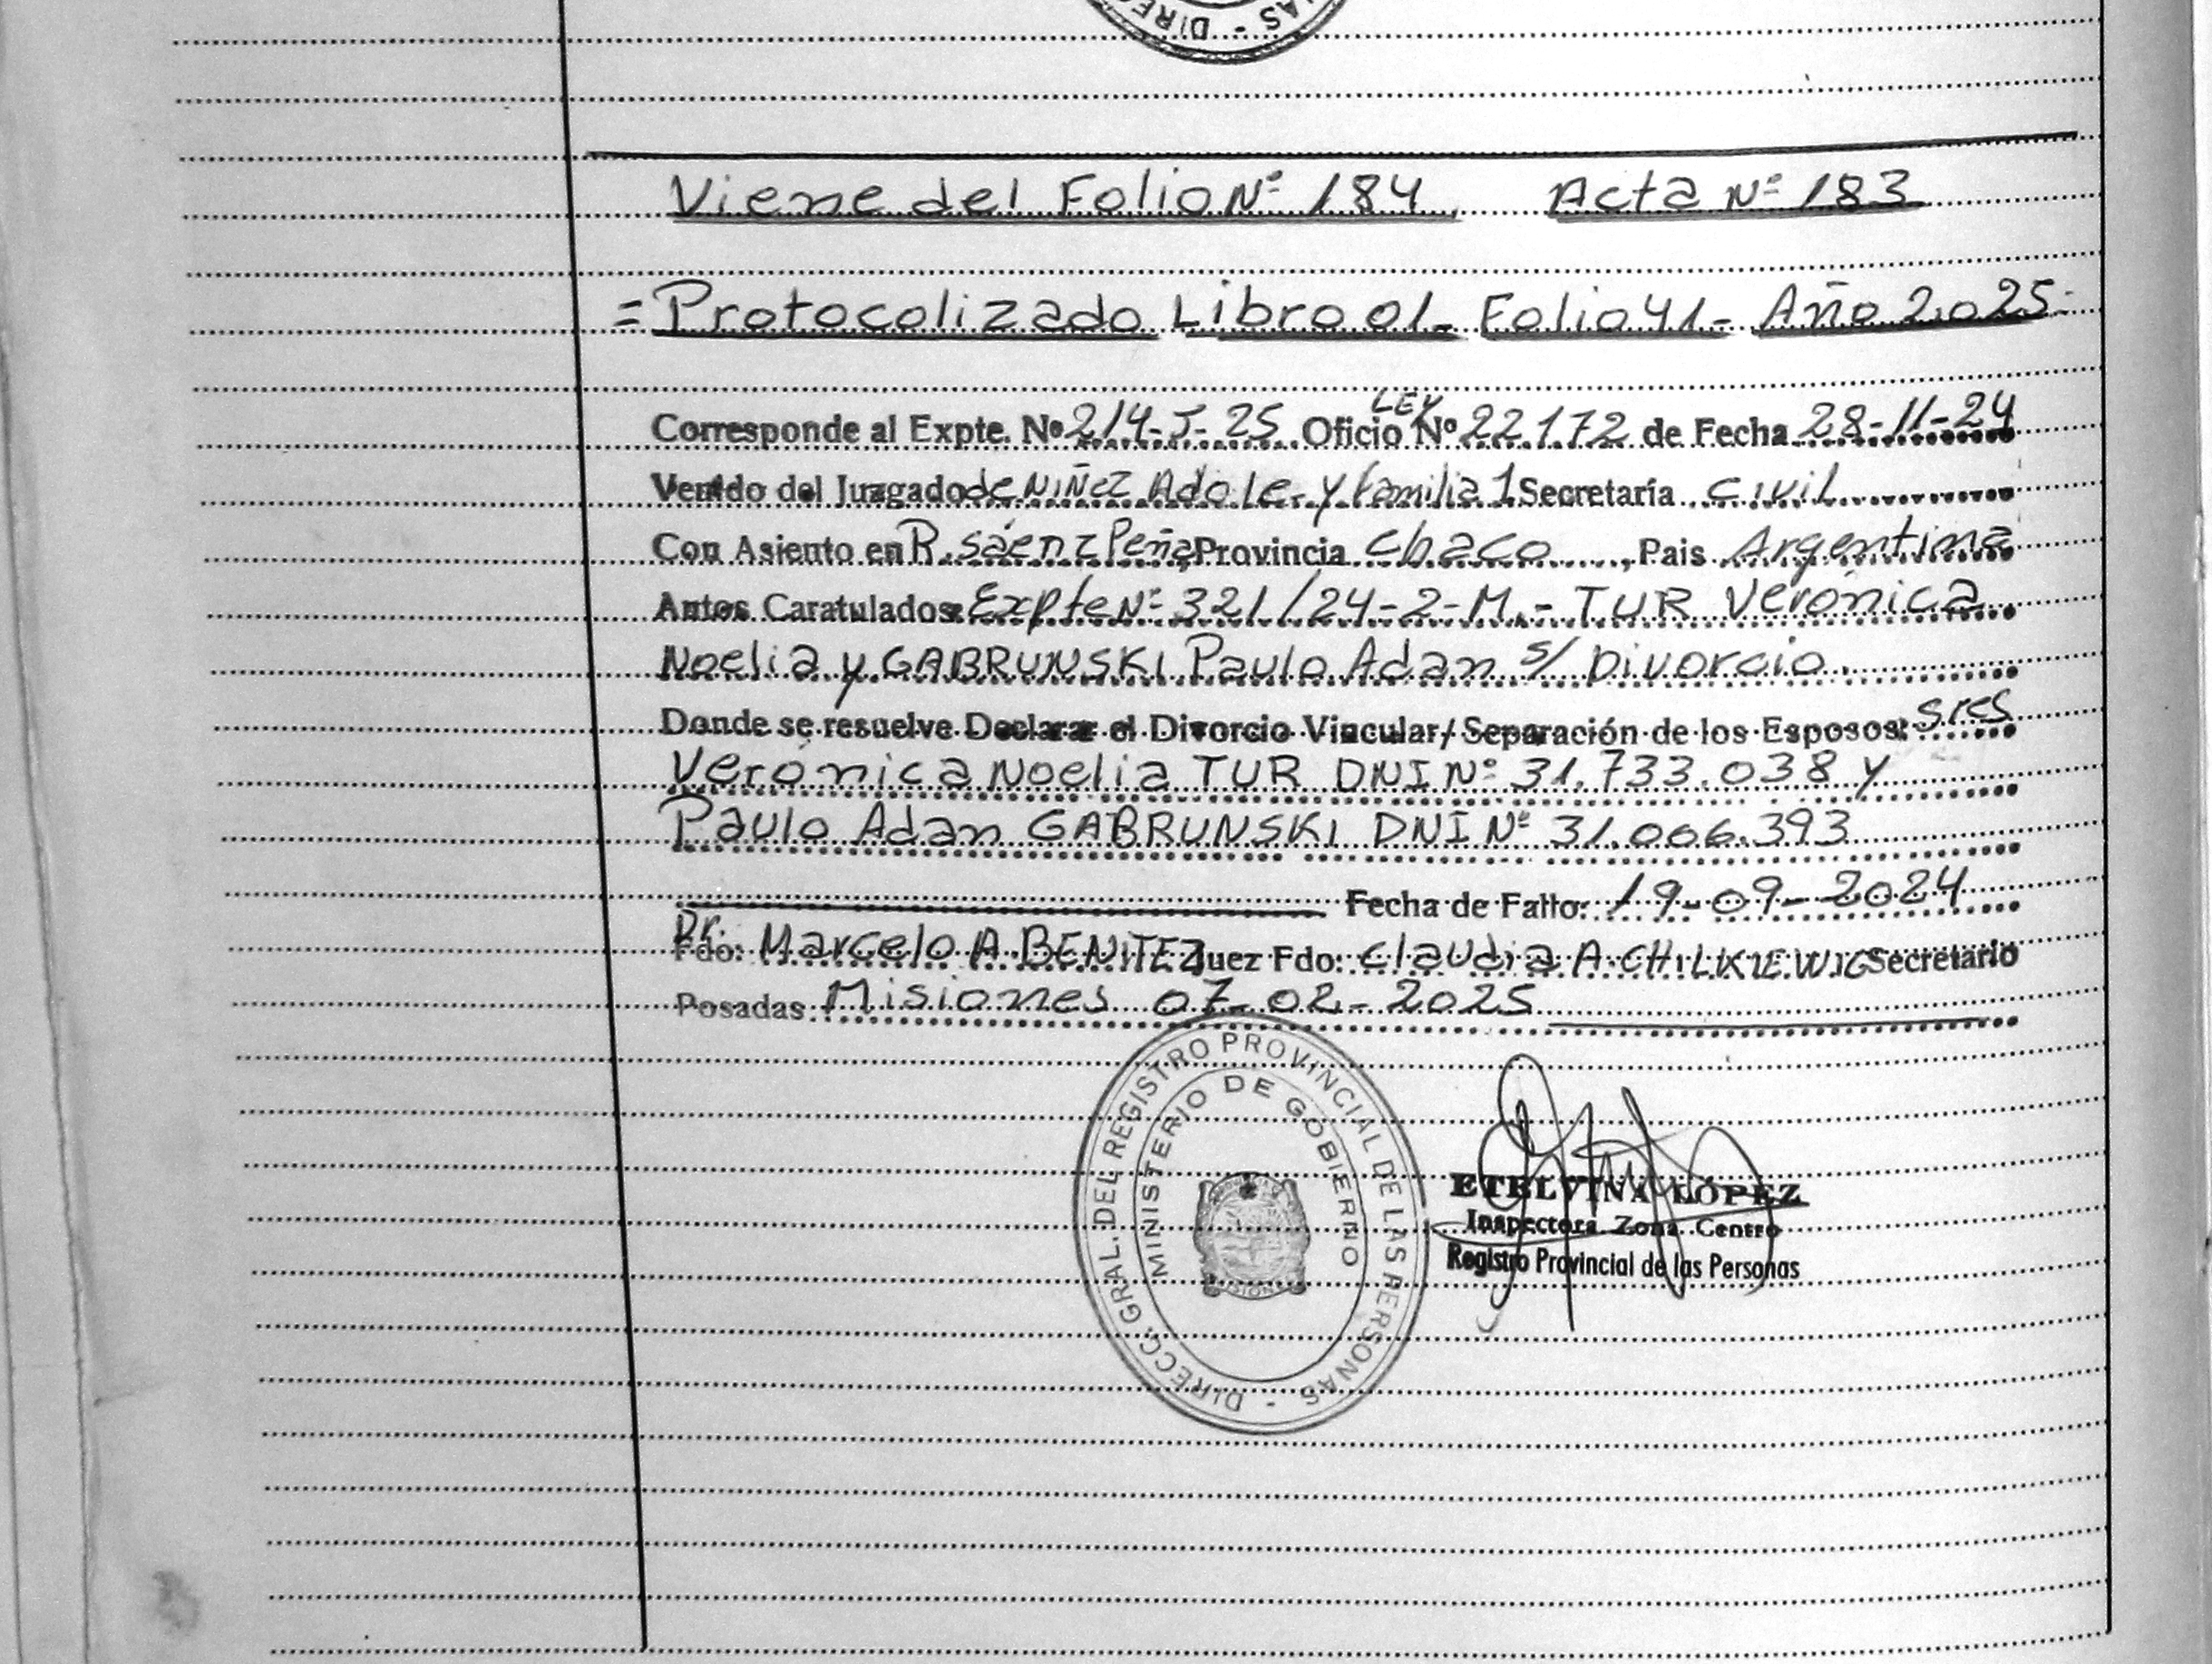 Viene del Folio Nº 184 Acta Nº 183
= Protocolizado Libro 01- Folio 41- Año 2.025-
Corresponde al Expte. Nº 214-J-25 Oficio LEY Nº 22.172 de Fecha 28-11-24
Venido del Juzgado de Niñez Adole. y Familia 1 Secretaría Civil
Con Asiento en R. Sáenz Peña Provincia Chaco, Pais Argentina
Autos Caratulados: Expte Nº 321/24-2-M.- TUR Verónica
Noelia y GABRUNSKI Paulo Adan s/ Divorcio.
Donde se resuelve Declarar el Divorcio Vincular/Separación de los Esposos: sres
Verónica Noelia TUR DNI Nº 31.733.038 y
Paulo Adan GABRUNSKI DNI Nº 31.006.393
Fecha de Fallo: 19-09-2024
Fdo: Dr. Marcelo A. BENITEZ Juez Fdo: Claudia A. CHILKIEWIC Secretario
Posadas: Misiones 07-02-2025
DIRECC. GRAL. DEL REGISTRO PROVINCIAL DE LAS PERSONAS -
MINISTERIO DE GOBIERNO
ETELVINA LÓPEZ
Inspectora Zona Centro
Registro Provincial de las Personas